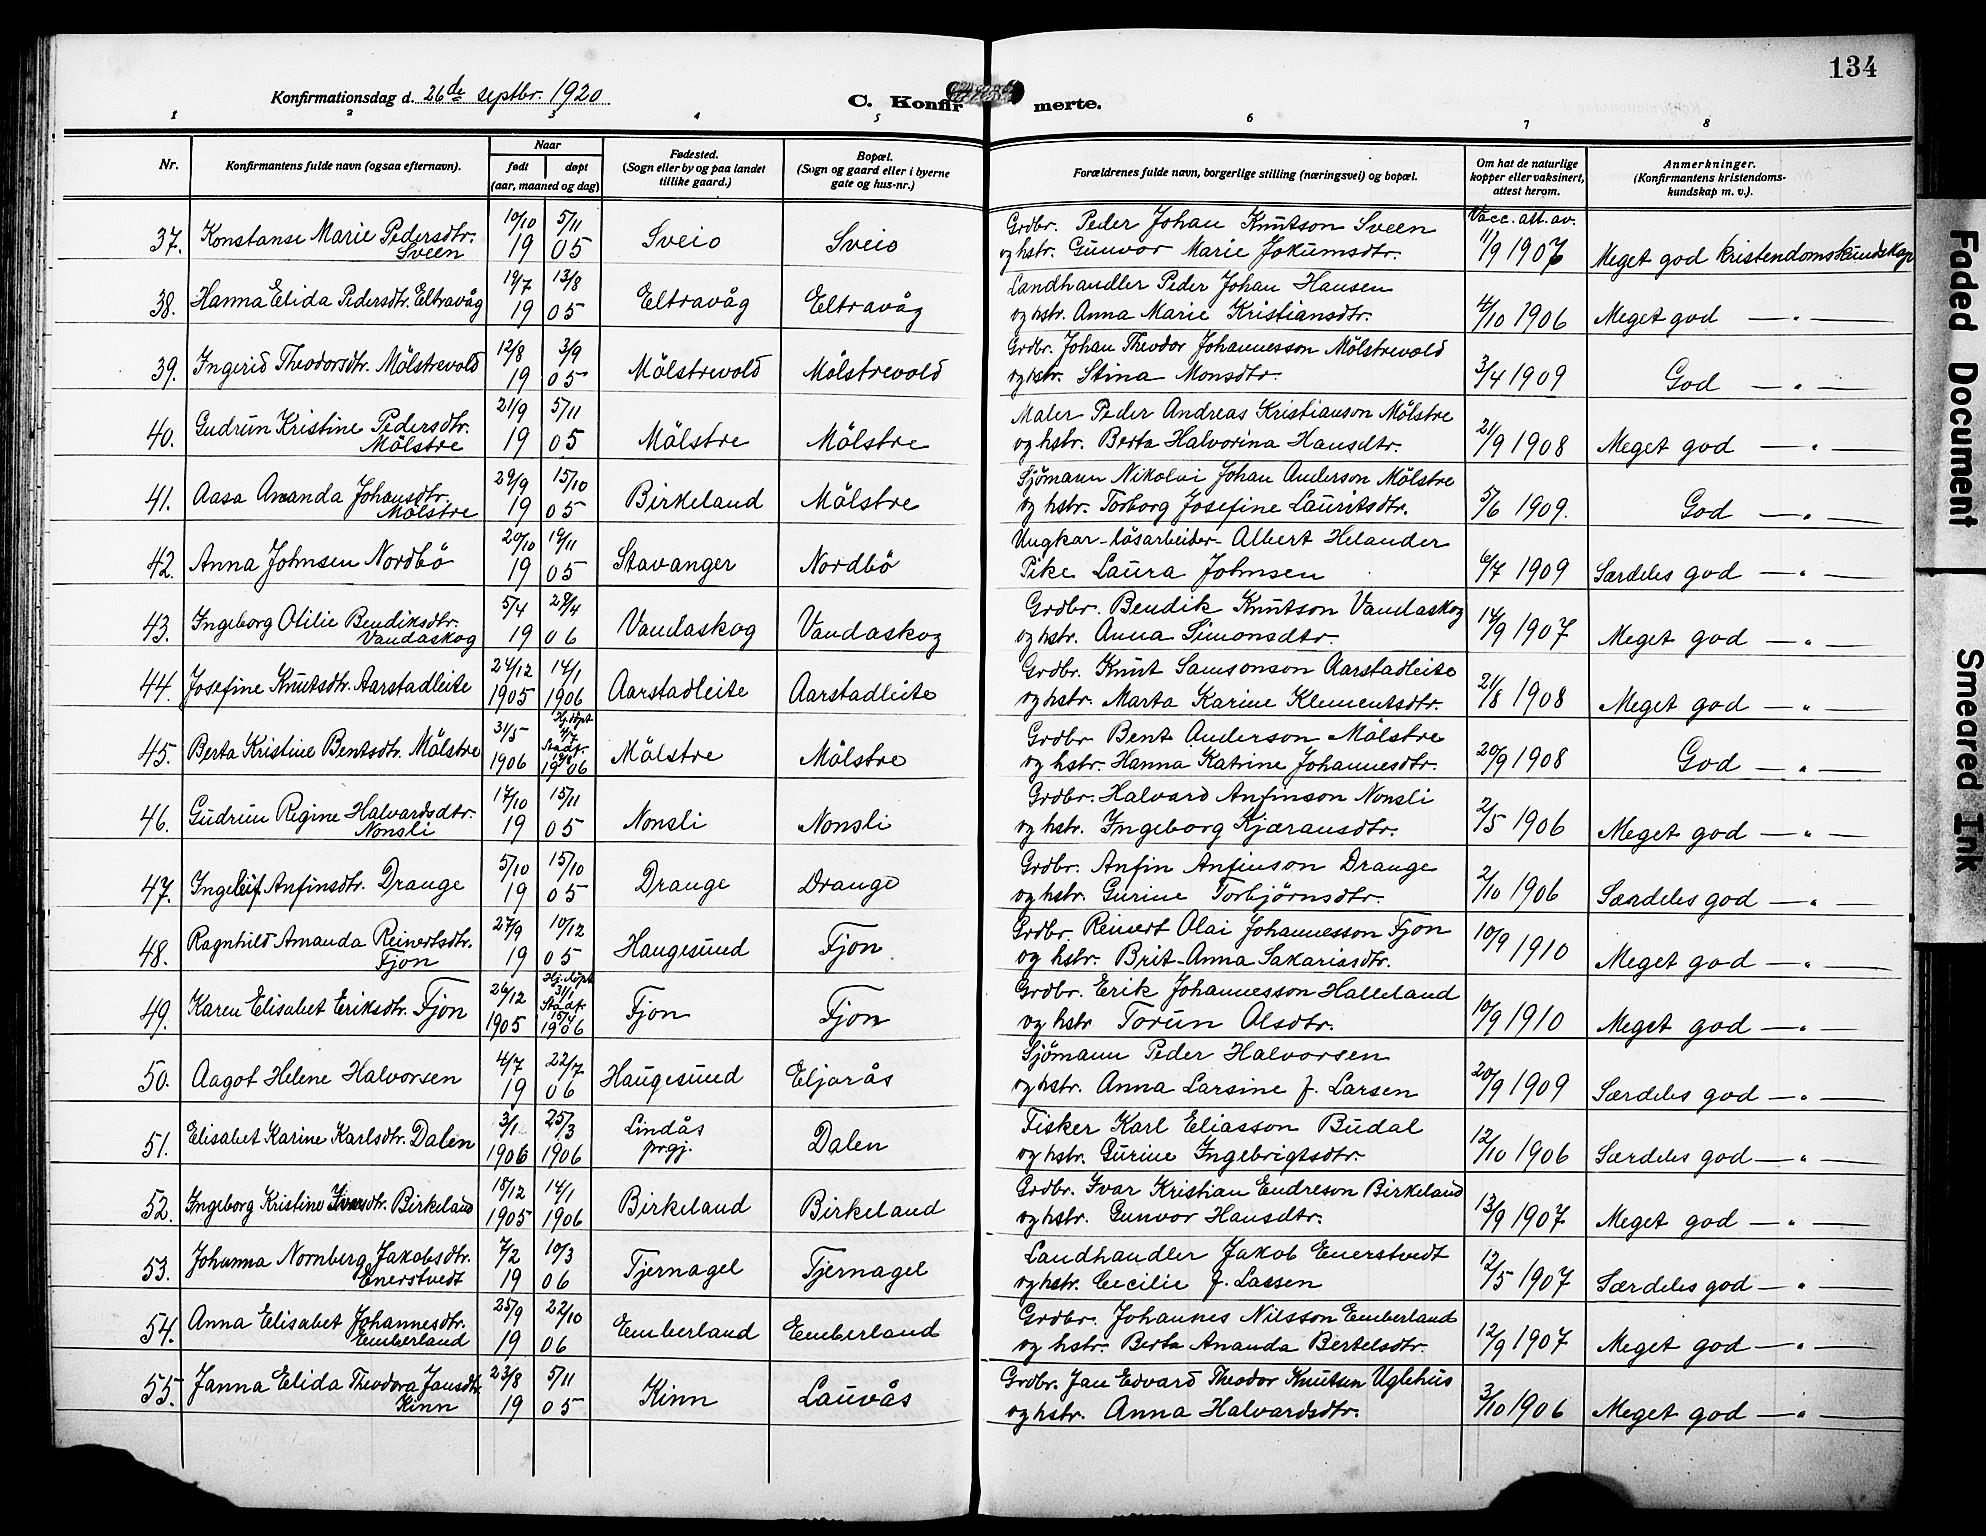 134
Konfirmationsdag d. 26de septbr. 1920
C. Konfirmerte.
1 2 3 4 5 6 7 8
Nr. Konfirmantens fulde navn (ogsaa efternavn). Naar født døpt (aar, maaned og dag) Fødested. (Sogn eller by og paa landet tillike gaard.) Bopæl. (Sogn og gaard eller i byerne gate og hus-nr.) Forældrenes fulde navn, borgerlige stilling (næringsvei) og bopæl. Om hat de naturlige kopper eller vaksinert, attest herom. Anmerkninger. (Konfirmantens kristendoms-kundskap m. v.).
37. Konstanse Marie Pedersdtr. Sveen 10/10 1905 5/11 Sveio Sveio Grdbr. Peder Johan Knutson Sveen og hstr. Gunvor Marie Jokumsdtr. Vacc. att. av. 11/9 1907 Meget god kristendomskundskap
38. Hanna Elida Pedersdtr. Eltravåg 19/7 13/8 1905 Eltravåg Eltravåg Landhandler Peder Johan Hansen og hstr. Anna Marie Kristiansdtr. 4/10 1906 Meget god — „ —
39. Ingerid Theodorsdtr. Mölstrevold 12/8 3/9 1905 Mölstrevold Mölstrevold Grdbr. Johan Theodor Johannesson Mölstrevold og hstr. Stina Monsdtr. 3/4 1909 God — „ —
40. Gudrun Kristine Pedersdtr. Mölstre 21/9 5/11 1905 Mölstre Mölstre Maler Peder Andreas Kristianson Mölstre og hstr. Berta Halvorina Hansdtr. 21/9 1908 Meget god — „
41. Aasa Amanda Johansdtr. Mölstre 29/9 15/10 1905 Birkeland Mölstre Sjömann Nikolai Johan Anderson Mölstre og hstr. Torborg Josefine Lauritsdtr. 5/6 1909. God — „ —
42. Anna Johnsen Nordbö 20/10 19/11 1905 Stavanger Nordbö Ungkar-låsarbeider- Albert Helander Pike Laura Johnsen 6/7 1909 Særdeles god — „ —
43. Ingeborg Otilie Bendiksdtr. Vandaskog 5/4 29/4 1906 Vandaskog Vandaskog Grdbr. Bendik Knutson Vandaskog og hstr. Anna Simonsdtr. 14/9 1907 Meget god — „
44. Josefine Knutsdtr. Aarstadleite 24/12 1905 14/1 1906 Aarstadleite Aarstadleite Grdbr. Knut Samsonson Aarstadleite og hstr. Marta Karine Klementsdtr. 21/8 1908 Meget god — „ —
45. Berta Kristine Bentsdtr. Mölstre 31/5 1906 Hj.döpt Stadf. 1906 Mölstre Mölstre Grdbr Bent Anderson Mölstre og hstr. Hanna Katrine Johannesdtr. 20/9 1908 God — „ —
46. Gudrun Regine Halvardsdtr. Nonsli 17/10 15/11 1905 Nonsli Nonsli Grdbr. Halvard Anfinson Nonsli og hstr. Ingeborg Kjæransdtr. 2/5 1906 Meget god — „ —
47. Ingeleif Anfinsdtr. Drange 5/10 15/10 1905 Drange Drange Grdbr. Anfin Anfinson Drange og hstr. Gurine Torbjörnsdtr. 2/10 1906 Særdeles god — „ —
48. Ragnhild Amanda Reinertsdtr. Fjon 27/9 10/12 1905 Haugesund Fjon Grdbr. Reinert Olai Johannesson Fjon og hstr. Brit-Anna Sakariasdtr. 10/9 1910 Meget god — „ —
49. Karen Elisabet Eriksdtr. Fjon 26/12 1905 Hj.döpt 31/1 Stadf. 15/4 1906 Fjon Fjon Grdbr. Erik Johannesson Halleland og hstr Torun Olsdtr. 10/9 1910 Meget god — „ —
50. Aagot Helene Halvorsen 4/7 22/7 1906 Haugesund Eljarås Sjömann Peder Halvorsen og hstr. Anna Larsine f. Larsen 20/9 1909 Særdeles god — „ —
51. Elisabet Karine Karlsdtr. Dalen 3/1 1906 25/3 1906 Lindås prgj. Dalen Fisker Karl Eliasson Budal og hstr. Gurine Ingebrigtsdtr. 12/10 1906 Særdeles god — „ —
52. Ingeborg Kristine Ivarsdtr. Birkeland 18/12 1905 14/1 1906 Birkeland Birkeland Grdbr. Ivar Kristian Endreson Birkeland og hstr. Gunvor Hansdtr. 13/9 1907 Meget god — „ —
53. Johanna Nornberg Jakobsdtr. Enerstvedt 7/2 10/3 1906 Tjernagel Tjernagel Landhandler Jakob Enerstvedt og hstr. Cecilie f. Lassen 12/5 1907 Særdeles god — „
54. Anna Elisabet Johannesdtr. Emberland 25/9 22/10 1906 Emberland Emberland Grdbr. Johannes Nilsson Emberland og hstr. Berta Amanda Bertelsdtr. 12/9 1907 Meget god — „ —
55. Janna Elida Theodora Jansdtr. Kinn 23/8 5/11 1905 Kinn Lauvås Grdbr. Jan Edvard Theodor Knutsen Uglehus og hstr. Anna Halvardsdtr. 3/10 1906 Meget god — „ —
Faded Document
Smeared Ink